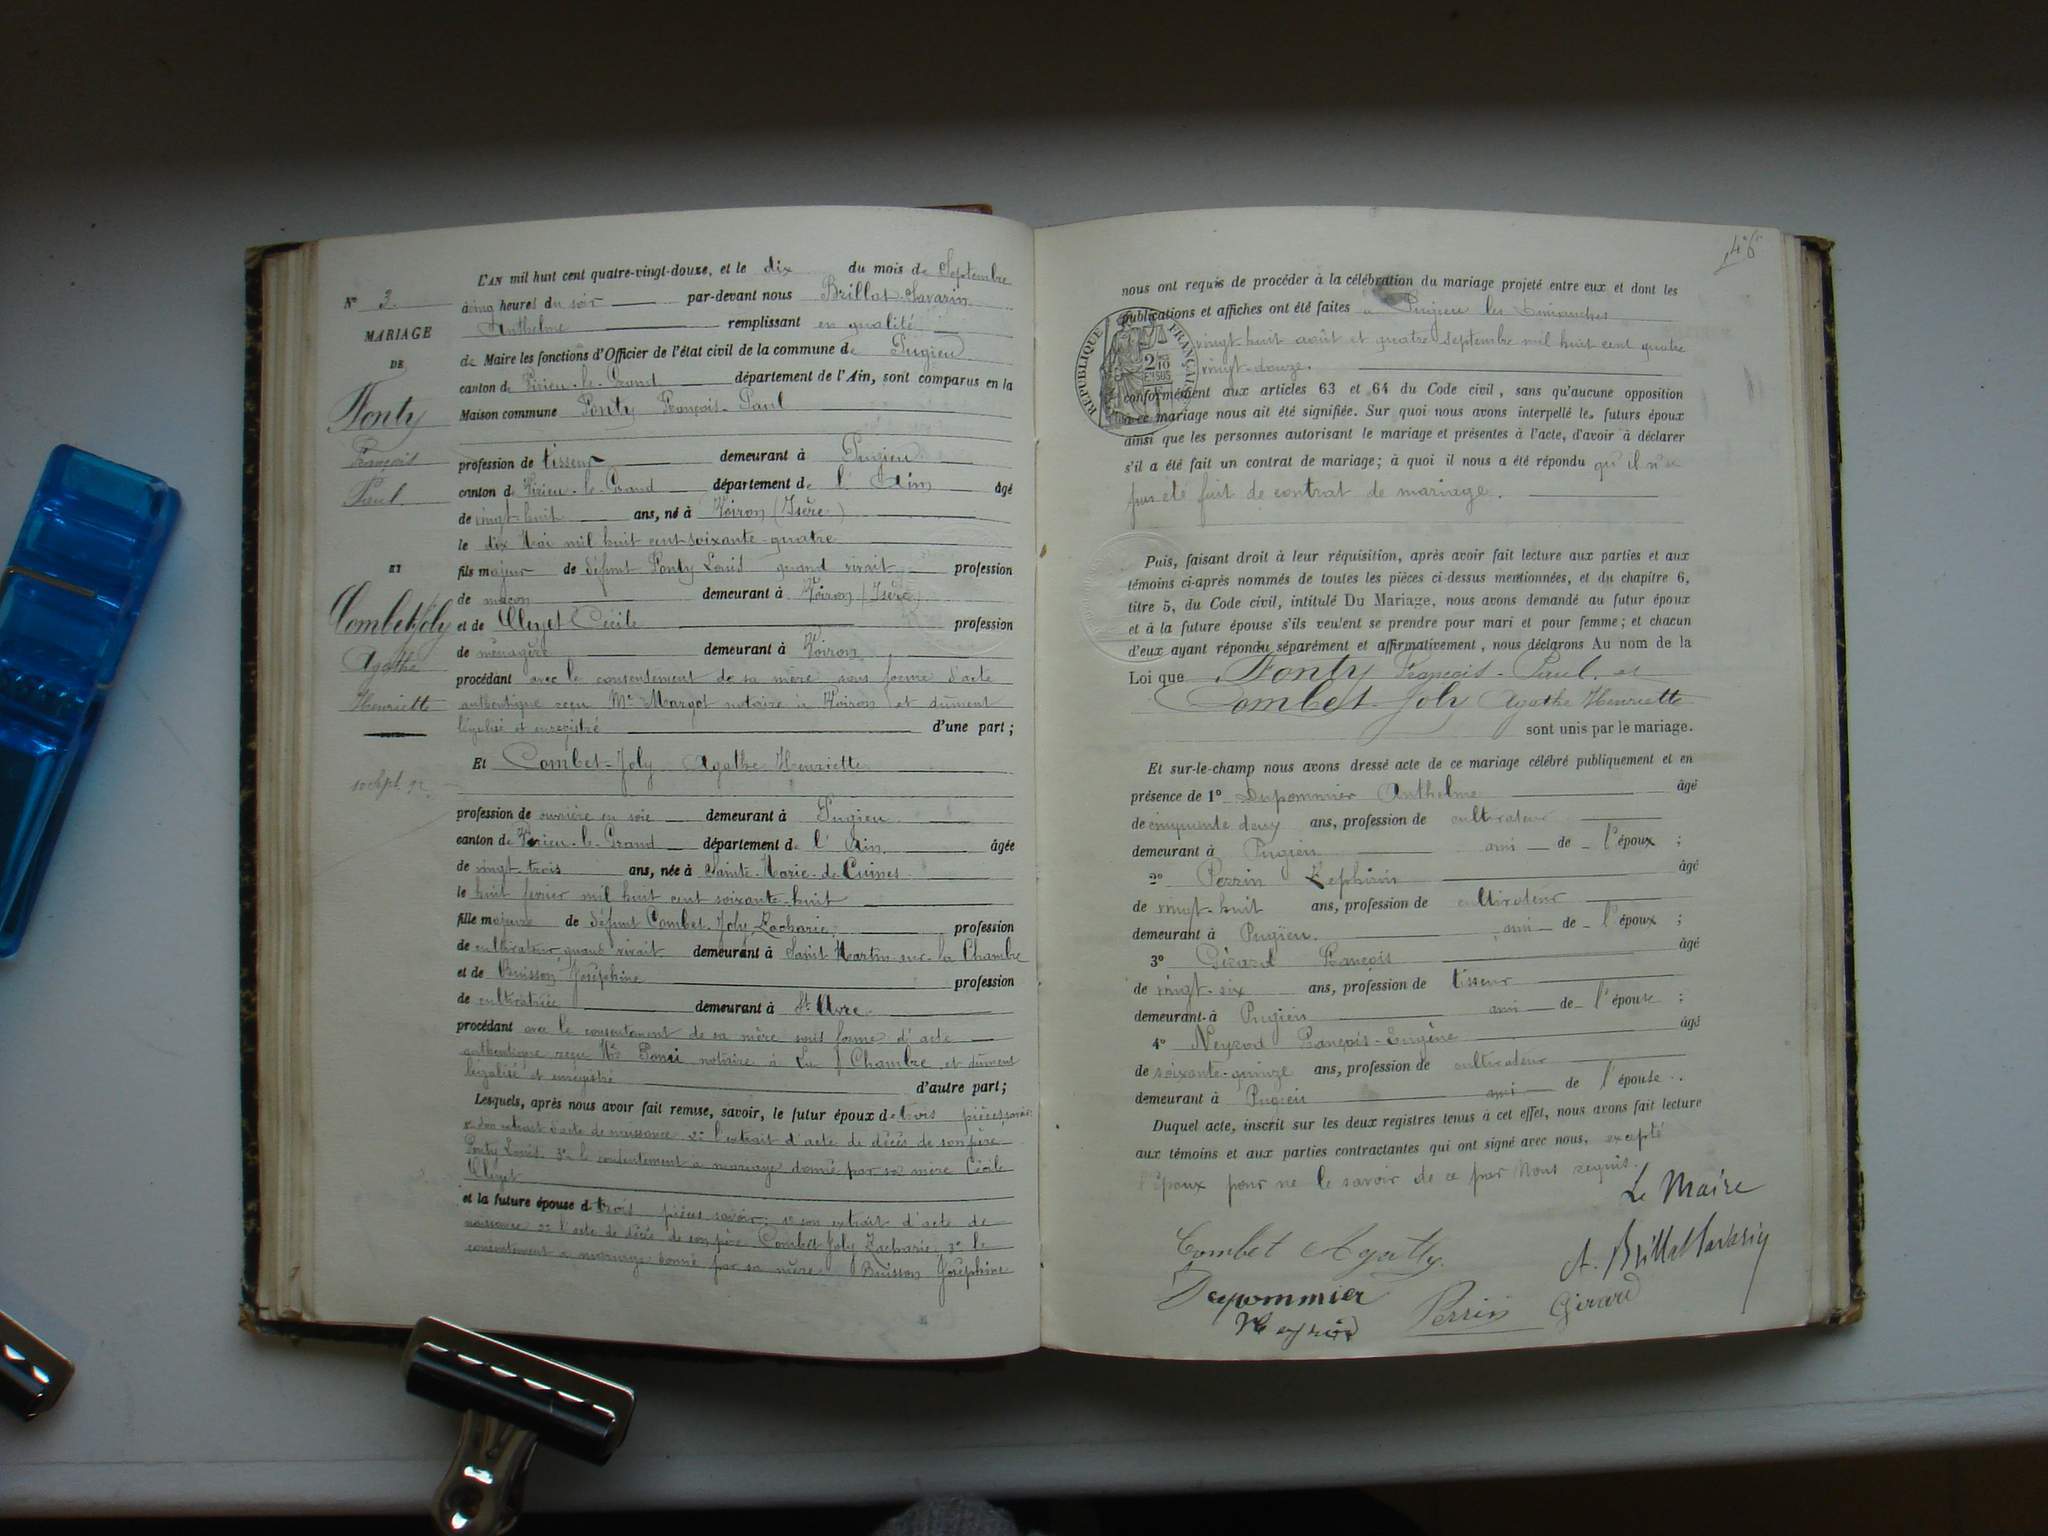 L'AN mil huit cent quatre-vingt-douze, et le dix du mois de Septembre
N° 3. à cinq heures du soir par-devant nous Brillat-Savarin
MARIAGE Anthelme remplissant en qualité
DE de Maire les fonctions d'Officier de l'état civil de la commune de Pugieu
canton de Virieu-le-Grand département de l'Ain, sont comparus en la
Fonty Maison commune Fonty François-Paul
François profession de tisseur demeurant à Pugieu
Paul canton de Virieu-le-Grand département de l'Ain âgé
de vingt-huit ans, né à Voiron (Isère)
le dix Mai mil huit cent soixante-quatre
ET fils majeur de défunt Fonty Louis quand vivait profession
de maçon demeurant à Voiron (Isère)
Combet-Joly et de Cleyet Cécile profession
Agathe de ménagère demeurant à Voiron
procédant avec le consentement de sa mère sous forme d'acte
Henriette authentique reçu Me Margot notaire à Voiron et dûment
légalisé et enregistré d'une part;
Et Combet-Joly Agathe Henriette
10 sept. 92.
profession de ouvrière en soie demeurant à Pugieu
canton de Virieu-le-Grand département de l'Ain âgée
de vingt-trois ans, née à Sainte-Marie-de-Cuines
le huit février mil huit cent soixante-huit
fille majeure de défunt Combet-Joly Zacharie, profession
de cultivateur quand vivait demeurant à Saint Martin-sur-la Chambre
et de Buisson Joséphine profession
de cultivatrice demeurant à St Avre
procédant avec le consentement de sa mère sous forme d'acte
authentique reçu Me notaire à La Chambre et dûment
légalisé et enregistré d'autre part;
Lesquels, après nous avoir fait remise, savoir, le futur époux de trois pièces savoir
1° son extrait d'acte de naissance 2° l'extrait d'acte de décès de son père
Fonty Louis. 3° le consentement à mariage donné par sa mère Cécile
Cleyet
et la future épouse de trois pièces savoir: 1° son extrait d'acte de
naissance 2° l'acte de décès de son père Combet-Joly Zacharie, 3° le
consentement à mariage donné par sa mère Buisson Joséphine
46
nous ont requis de procéder à la célébration du mariage projeté entre eux et dont les
publications et affiches ont été faites à Pugieu les Dimanches
vingt-huit août et quatre septembre mil huit cent quatre
vingt-douze.
RÉPUBLIQUE FRANÇAISE
2/10 EN SUS
conformément aux articles 63 et 64 du Code civil, sans qu'aucune opposition
à ce mariage nous ait été signifiée. Sur quoi nous avons interpellé les futurs époux
ainsi que les personnes autorisant le mariage et présentes à l'acte, d'avoir à déclarer
s'il a été fait un contrat de mariage; à quoi il nous a été répondu qu'il n'a
pas été fait de contrat de mariage.
Puis, faisant droit à leur réquisition, après avoir fait lecture aux parties et aux
témoins ci-après nommés de toutes les pièces ci-dessus mentionnées, et du chapitre 6,
titre 5, du Code civil, intitulé Du Mariage, nous avons demandé au futur époux
et à la future épouse s'ils veulent se prendre pour mari et pour femme; et chacun
d'eux ayant répondu séparément et affirmativement, nous déclarons Au nom de la
Loi que Fonty François-Paul. et
Combet-Joly Agathe Henriette
sont unis par le mariage.
Et sur-le-champ nous avons dressé acte de ce mariage célébré publiquement et en
présence de 1° Dupommier Anthelme âgé
de cinquante deux ans, profession de cultivateur
demeurant à Pugieu ami de l'époux ;
2° Perrin Zephirin âgé
de vingt-huit ans, profession de cultivateur
demeurant à Pugieu. ami de l'époux ;
3° Girard François âgé
de vingt-six ans, profession de tisseur
demeurant à Pugieu ami de l'épouse ;
4° Neyrod François-Eugène âgé
de soixante-quinze ans, profession de cultivateur
demeurant à Pugieu ami de l'épouse.
Duquel acte, inscrit sur les deux registres tenus à cet effet, nous avons fait lecture
aux témoins et aux parties contractantes qui ont signé avec nous, excepté
l'époux pour ne le savoir de ce par Nous requis.
Le Maire
Combet Agathe
A. Brillat Savarin
Dupommier
Perrin Girard
Neyrod